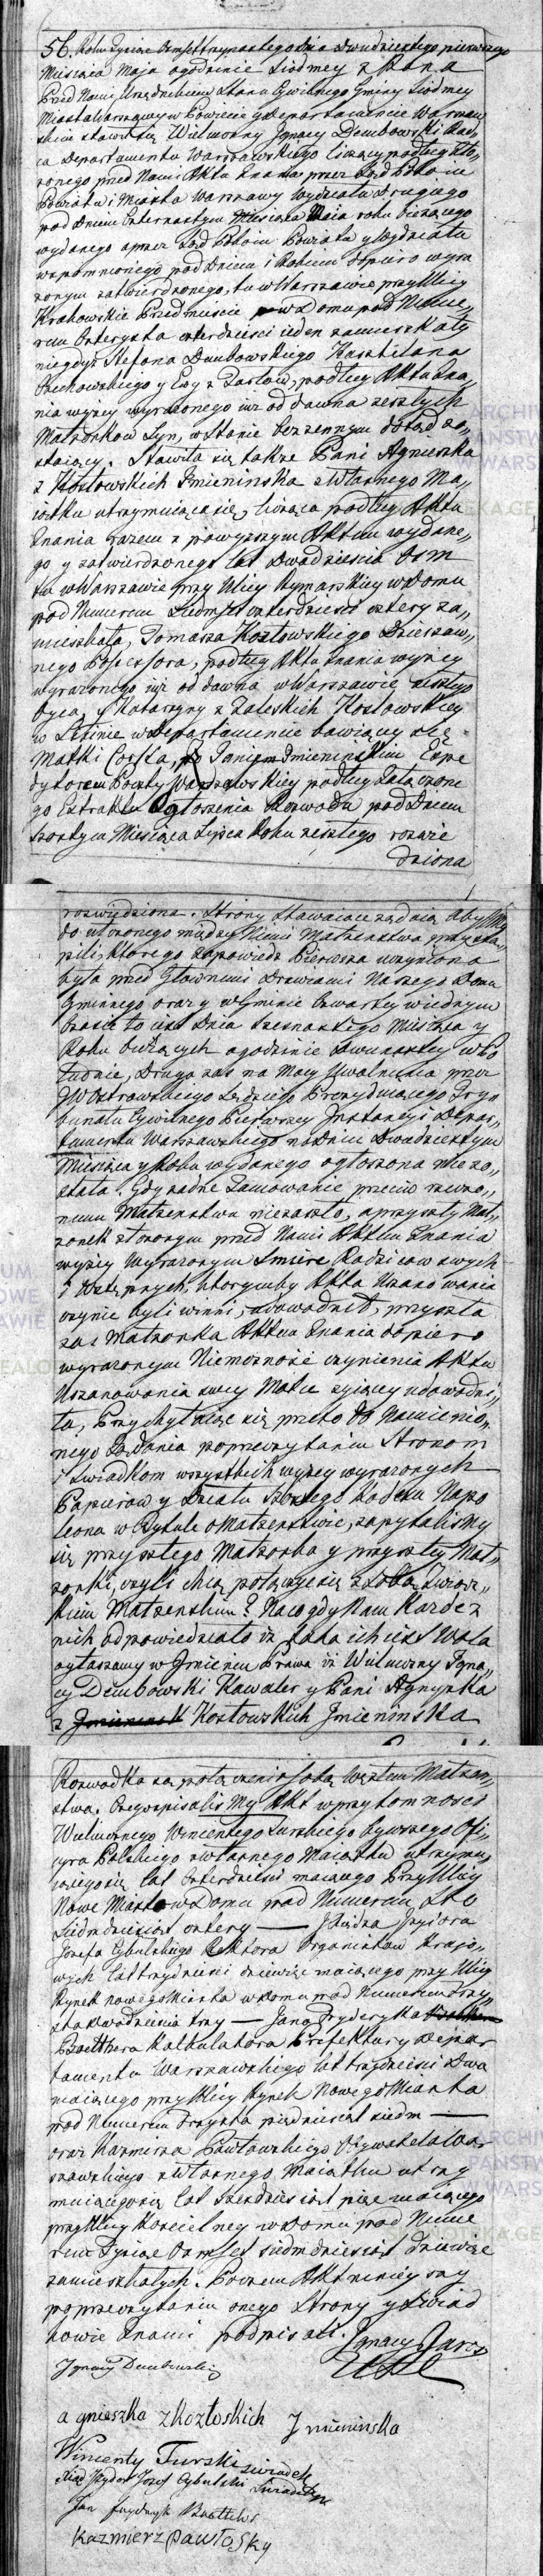 56. Roku Tysiąc Ośmsettrzynastego dnia Dwudziestego pierwszego
Miesiąca Maja o godzinie Siódmey z Rana
Przed Nami Urzędnikiem Stanu Cywilnego Gminy Siódmey
Miasta Warszawy w Powiecie y Departamencie Warszaw
skim stawił się Wielmożny Jgnacy Dembowski Rad„
ca Departamentu Warszawskiego liczący podług zło„
żonego przed Nami Aktu Znania przez Sąd Pokoiu
Powiatu i Miasta Warszawy Wydziału Drugiego
pod Dniem Czternastym Miesiąca Maia roku bieżącego
wydanego a przez Sąd Pokoiu Powiatu y Wydziału
wspomnionego pod Dniem i Rokiem dopiero wyra
żonym zatwierdzonego, tu w Warszawie przy Ulicy
Krakowskie Przedmieście w Domu pod Nume„
rem Czterysta czterdzieści ieden zamieszkały
niegdyś Stefana Dembowskiego Kasztelana
Czechowskiego y Ewy z Tarłów, podług Aktu Zna„
nia wyżey wyrażonego iuż od dawna zeszłych
Małżonków Syn, w Stanie bezżennym dotąd zo„
staiący. Stawiła się także Pani Agnieszka
z Kozłowskich Jmienińska z Własnego Ma„
iątku utrzymuiąca się, licząca podług Aktu
Znania razem z powyższym Aktem wydane„
go y zatwierdzonego lat Dwadzieścia Ośm
tu w Warszawie przy Ulicy Rymarskiey w Domu
pod Numerem Siedmset czterdzieści cztery za„
mieszkała, Tomasza Kozłowskiego Dzierżaw„
nego Possessora, podług Aktu Znania wyżey
wyrażonego iuż od dawna w Warszawie zeszłego
Oyca, y Katarzyny z Zaleskich Kozłowskiey
w Departamencie bawiącey się
Matki Córka, z Panem Jmienińskim Expe
dytorem Poczty Warszawskiey podług załączone
go Extraktu Ogłoszenia Rozwodu pod Dniem
Szóstym Miesiąca Lipca Roku zeszłego rozwie
dziona
rozwiedziona. Strony stawaiące żądaią abyśmy
do ułożonego między Niemi Małżeństwa przystą„
pili, którego zapowiedź Pierwsza uczyniona
była przed Głównemi Drzwiami Naszego Domu
Gminnego oraz y w Gminie Czwartey w iednym
Czasie to iest Dnia Szesnastego Miesiąca y
Roku bieżących o godzinie Dwunastey w Po
łudnie, Druga zaś na Mocy Uwolnienia przez
JW Ostrowskiego Sędziego Prezyduiącego Tryb
bunału Cywilnego Pierwszey Jnstancyi Depar„
tamentu Warszawskiego na Dniu Dwudziestym
Miesiąca y Roku wydanego ogłoszona nie zo„
stała. Gdy żadne Tamowanie przeciw rzeczo„
nemu Małżeństwu nie zaszło, a przyszły Mał„
żonek złożonym przed Nami Aktem Znania
wyżey wyrażonym Śmierć Rodziców swych
i Wstępnych, którymby Akta Uszanowania
czynić byli winni, udowodnił, przyszła
zaś Małżonka Aktem Znania dopiero
wyrażonym Niemożność czynienia Aktu
Uszanowania swey Matce żyiącey udowodni„
ła, Przychylaiąc się przeto do Namienio„
nego Żądania po przeczytaniu Stronom
i Świadkom wszystkich wyżey wyrażonych
Papierów y Działu Szóstego Kodexu Napo
leona w Tytule o Małżeństwie, zapytaliśmy
się przyszłego Małżonka y przyszłey Mał„
żonki, czyli chcą połączyć się z sobą Związ„
kiem Małżeńskim? Na co gdy Nam Każde z
nich odpowiedziało iż taka ich iest Wola
ogłaszamy w Jmieniu Prawa iż Wielmożny Jgna„
cy Dembowski Kawaler y Pani Agnyszka
z Kozłowskich Jmienińska
Rozwódka są połączeni z sobą Węzłem Małżeń„
stwa. Czego spisaliśmy Akt w przytomności
Wielmożnego Wincentego Turskiego bywszego Offi„
cyra Polskiego z własnego Maiątku utrzymu„
iącego się lat Czterdzieści maiącego Przy Ulicy
Nowe Miasto w Domu pod Numerem Sto
Siedmdziesiąt cztery — Xiędza Jzydora
Jozefa Cybulskiego Rektora Organistów Krajo„
wych lat trzydzieści dziewięć maiącego przy Ulicy
Rynek nowego Miasta w Domu pod Numerem Trzy„
sta dwadzieścia trzy — Jana Fryderyka
Boetthera Kalkulatora Prefektury Depar
tamentu Warszawskiego lat trzydzieści Dwa
maiącego przy Ulicy Rynek Nowego Miasta
pod Numerem Trzysta pięćdziesiąt siedm —
oraz Kazmierza Pawłowskiego Obywatela War
szawskiego z Własnego Maiątku utrzy
muiącego się lat Sześćdziesiąt pięć maiącego
przy Ulicy Kościelney w Domu pod Nume
rem Tysiąc Ośmset siedmdziesiąt dziewięć
zamieszkałych. Poczem Akt ninieyszy
po przeczytaniu onego Strony y Świad
kowie z Nami podpisali. Jgnacy Jaros
Jgnacy Dembowski
agnieszka z Kozłoskich Jmieninska
Wincenty Turski świadek
Xiądz Jzydor Jozef Cybulski Świadek
Jan Frydryk Boetther
Kazmierz Pawłosky